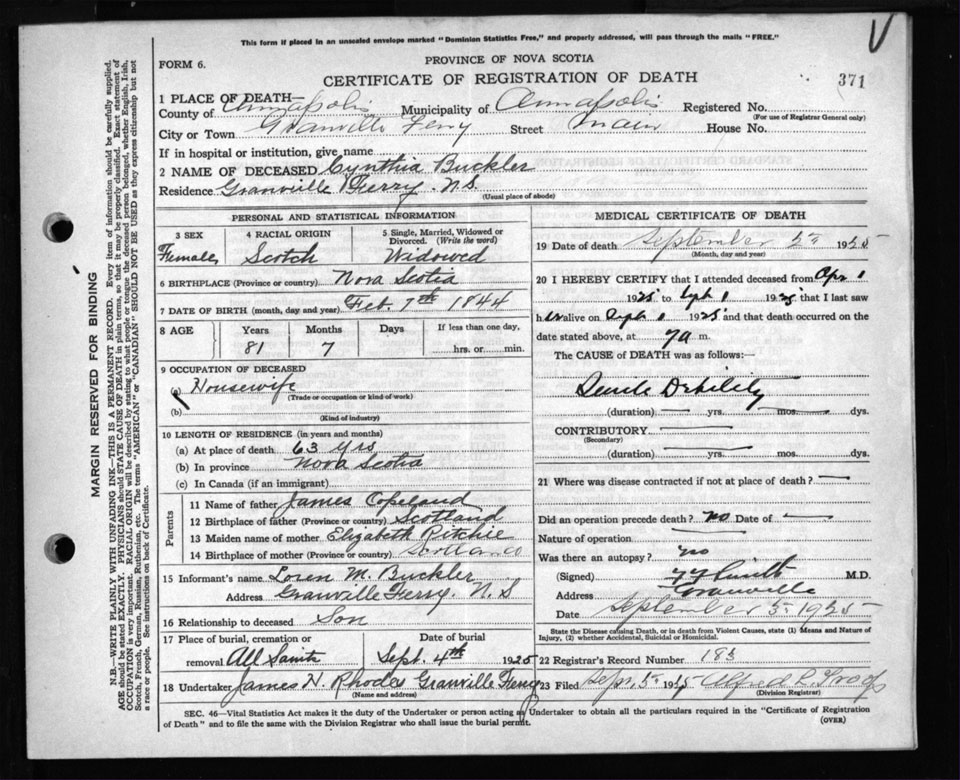 This form if placed in an unsealed envelope marked "Dominion Statistics Free," and properly addressed, will pass through the mails "FREE."
V
FORM 6.
PROVINCE OF NOVA SCOTIA
CERTIFICATE OF REGISTRATION OF DEATH
371
1 PLACE OF DEATH—
County of Annapolis Municipality of Annapolis Registered No.
(For use of Registrar General only)
City or Town Granville Ferry Street Main House No.
If in hospital or institution, give name
2 NAME OF DECEASED Cynthia Buckler
Residence Granville Ferry. N.S.
(Usual place of abode)
PERSONAL AND STATISTICAL INFORMATION
3 SEX 4 RACIAL ORIGIN 5 Single, Married, Widowed or Divorced. (Write the word)
Female Scotch Widowed
6 BIRTHPLACE (Province or country) Nova Scotia
7 DATE OF BIRTH (month, day and year) Feb. 7th 1844
8 AGE Years Months Days If less than one day,
81 7 hrs. or min.
9 OCCUPATION OF DECEASED
(a) Housewife
(Trade or occupation or kind of work)
(b)
(Kind of industry)
10 LENGTH OF RESIDENCE (in years and months)
(a) At place of death 63 yrs
(b) In province Nova Scotia
(c) In Canada (if an immigrant)
Parents
11 Name of father James Copeland
12 Birthplace of father (Province or country) Scotland
13 Maiden name of mother Elizabeth Ritchie
14 Birthplace of mother (Province or country) Scotland
15 Informant's name Loren M. Buckler
Address Granville Ferry. N.S
16 Relationship to deceased Son
17 Place of burial, cremation or Date of burial
removal All Saints Sept. 4th 1925
18 Undertaker James N. Rhodes Granville Ferry
(Name and address)
MEDICAL CERTIFICATE OF DEATH
19 Date of death September 2 1925
(Month, day and year)
20 I HEREBY CERTIFY that I attended deceased from Apr 1
1925 to Sept 1 1925 that I last saw
her alive on Sept 1 1925 and that death occurred on the
date stated above, at 7a m.
The CAUSE of DEATH was as follows:—
Senile Debility
(duration) — yrs. — mos. — dys.
CONTRIBUTORY —
(Secondary)
(duration) — yrs. — mos. — dys.
21 Where was disease contracted if not at place of death? —
Did an operation precede death? no Date of —
Nature of operation
Was there an autopsy? no
(Signed) M.D.
Address Granville
Date September 5 1925
State the Disease causing Death, or in death from Violent Causes, state (1) Means and Nature of
Injury, (2) whether Accidental, Suicidal or Homicidal.
22 Registrar's Record Number 183
23 Filed Sept. 5th 1925 Alfred
(Division Registrar)
SEC. 46—Vital Statistics Act makes it the duty of the Undertaker or Person acting as Undertaker to obtain all the particulars required in the "Certificate of Registration
of Death" and to file the same with the Division Registrar who shall issue the burial permit.
(OVER)
MARGIN RESERVED FOR BINDING
N.B.—WRITE PLAINLY WITH UNFADING INK—THIS IS A PERMANENT RECORD. Every item of information should be carefully supplied.
AGE should be stated EXACTLY. PHYSICIANS should STATE CAUSE OF DEATH in plain terms, so that it may be properly classified. Exact statement of
OCCUPATION is very important. RACIAL ORIGIN will be described by stating to what people or tongue the deceased person belonged, whether English, Irish,
Scotch, French, German, Russian, Ruthenian, etc. The terms "AMERICAN" or "CANADIAN" SHOULD NOT BE USED as they express citizenship but not
a race or people. See instructions on back of Certificate.